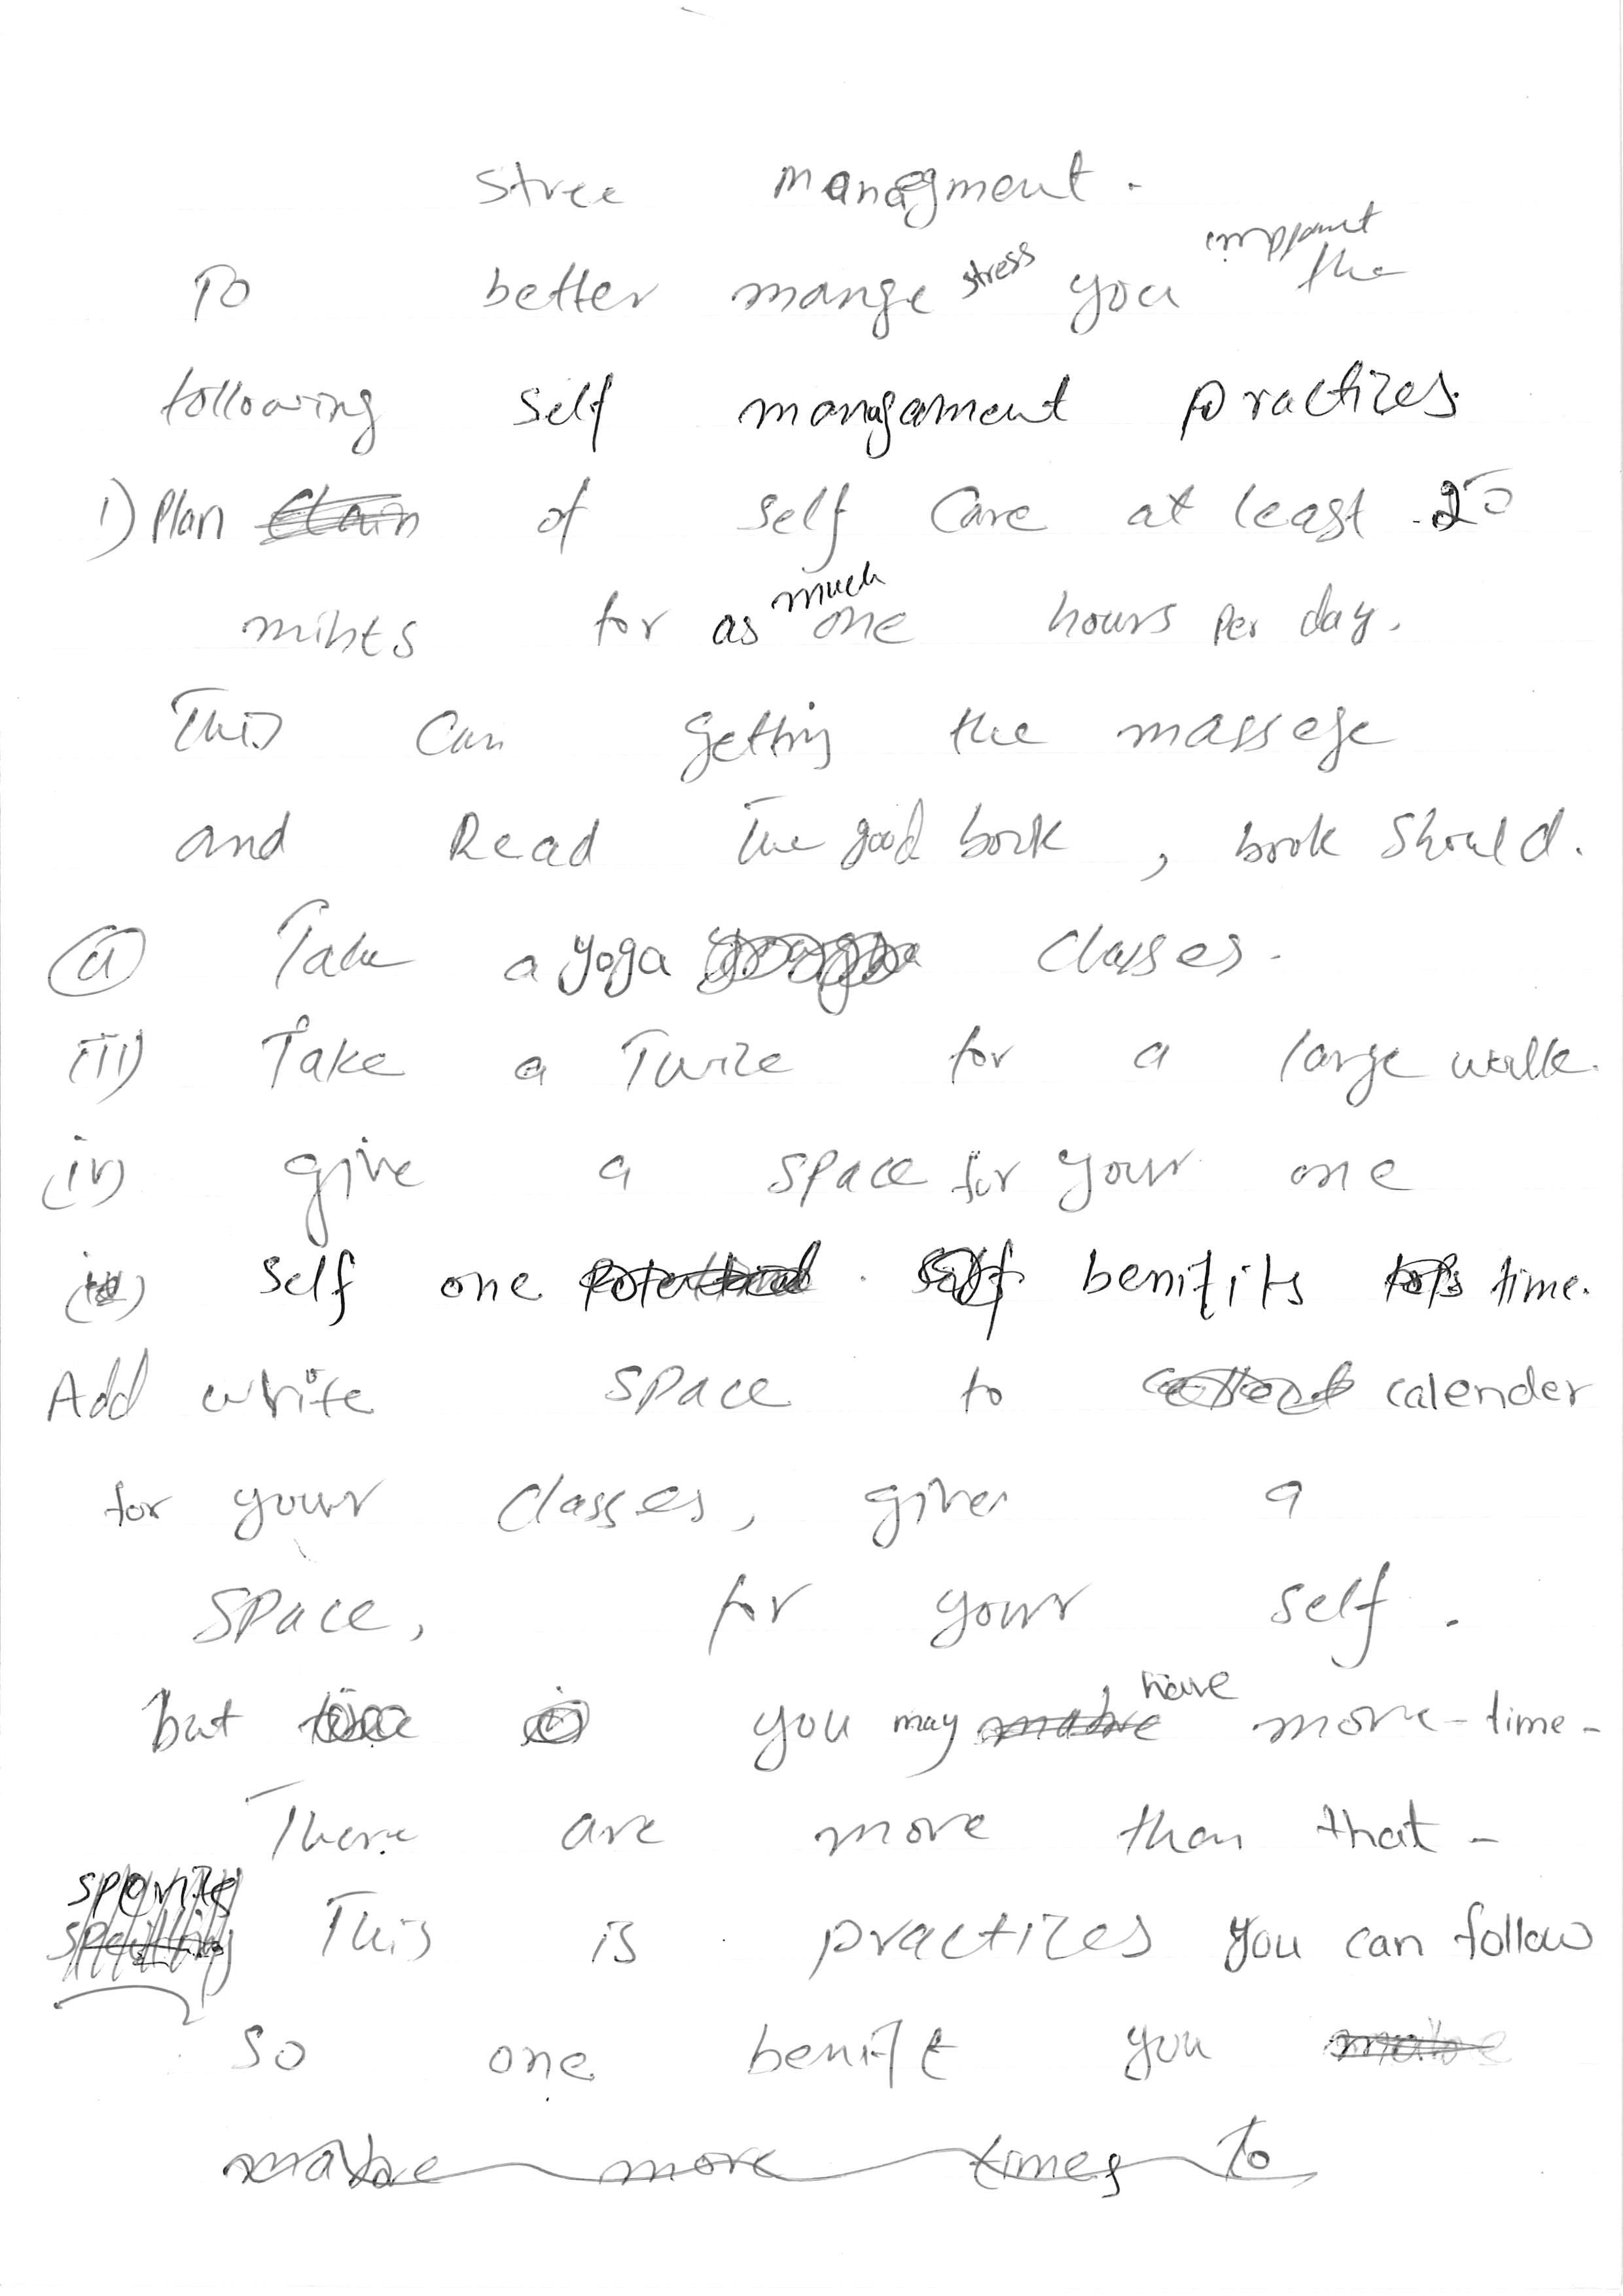 Stree managment.
To better mange stress you the
following self managament practizes.
i) Plan of self Care at least 20
mints for as much one hours Per day.
This Can getting the massege
and Read The good book , book Should.
(ii) Take a yoga Classes.
(iii) Take a Twize for a large walk.
(iv) give a space for your one
self one benifits time.
Add write space to calender
for your Classes, give a
Space, for your self.
but you may have more-time-
There are more than that-
This is practizes you can follow
So one benift you